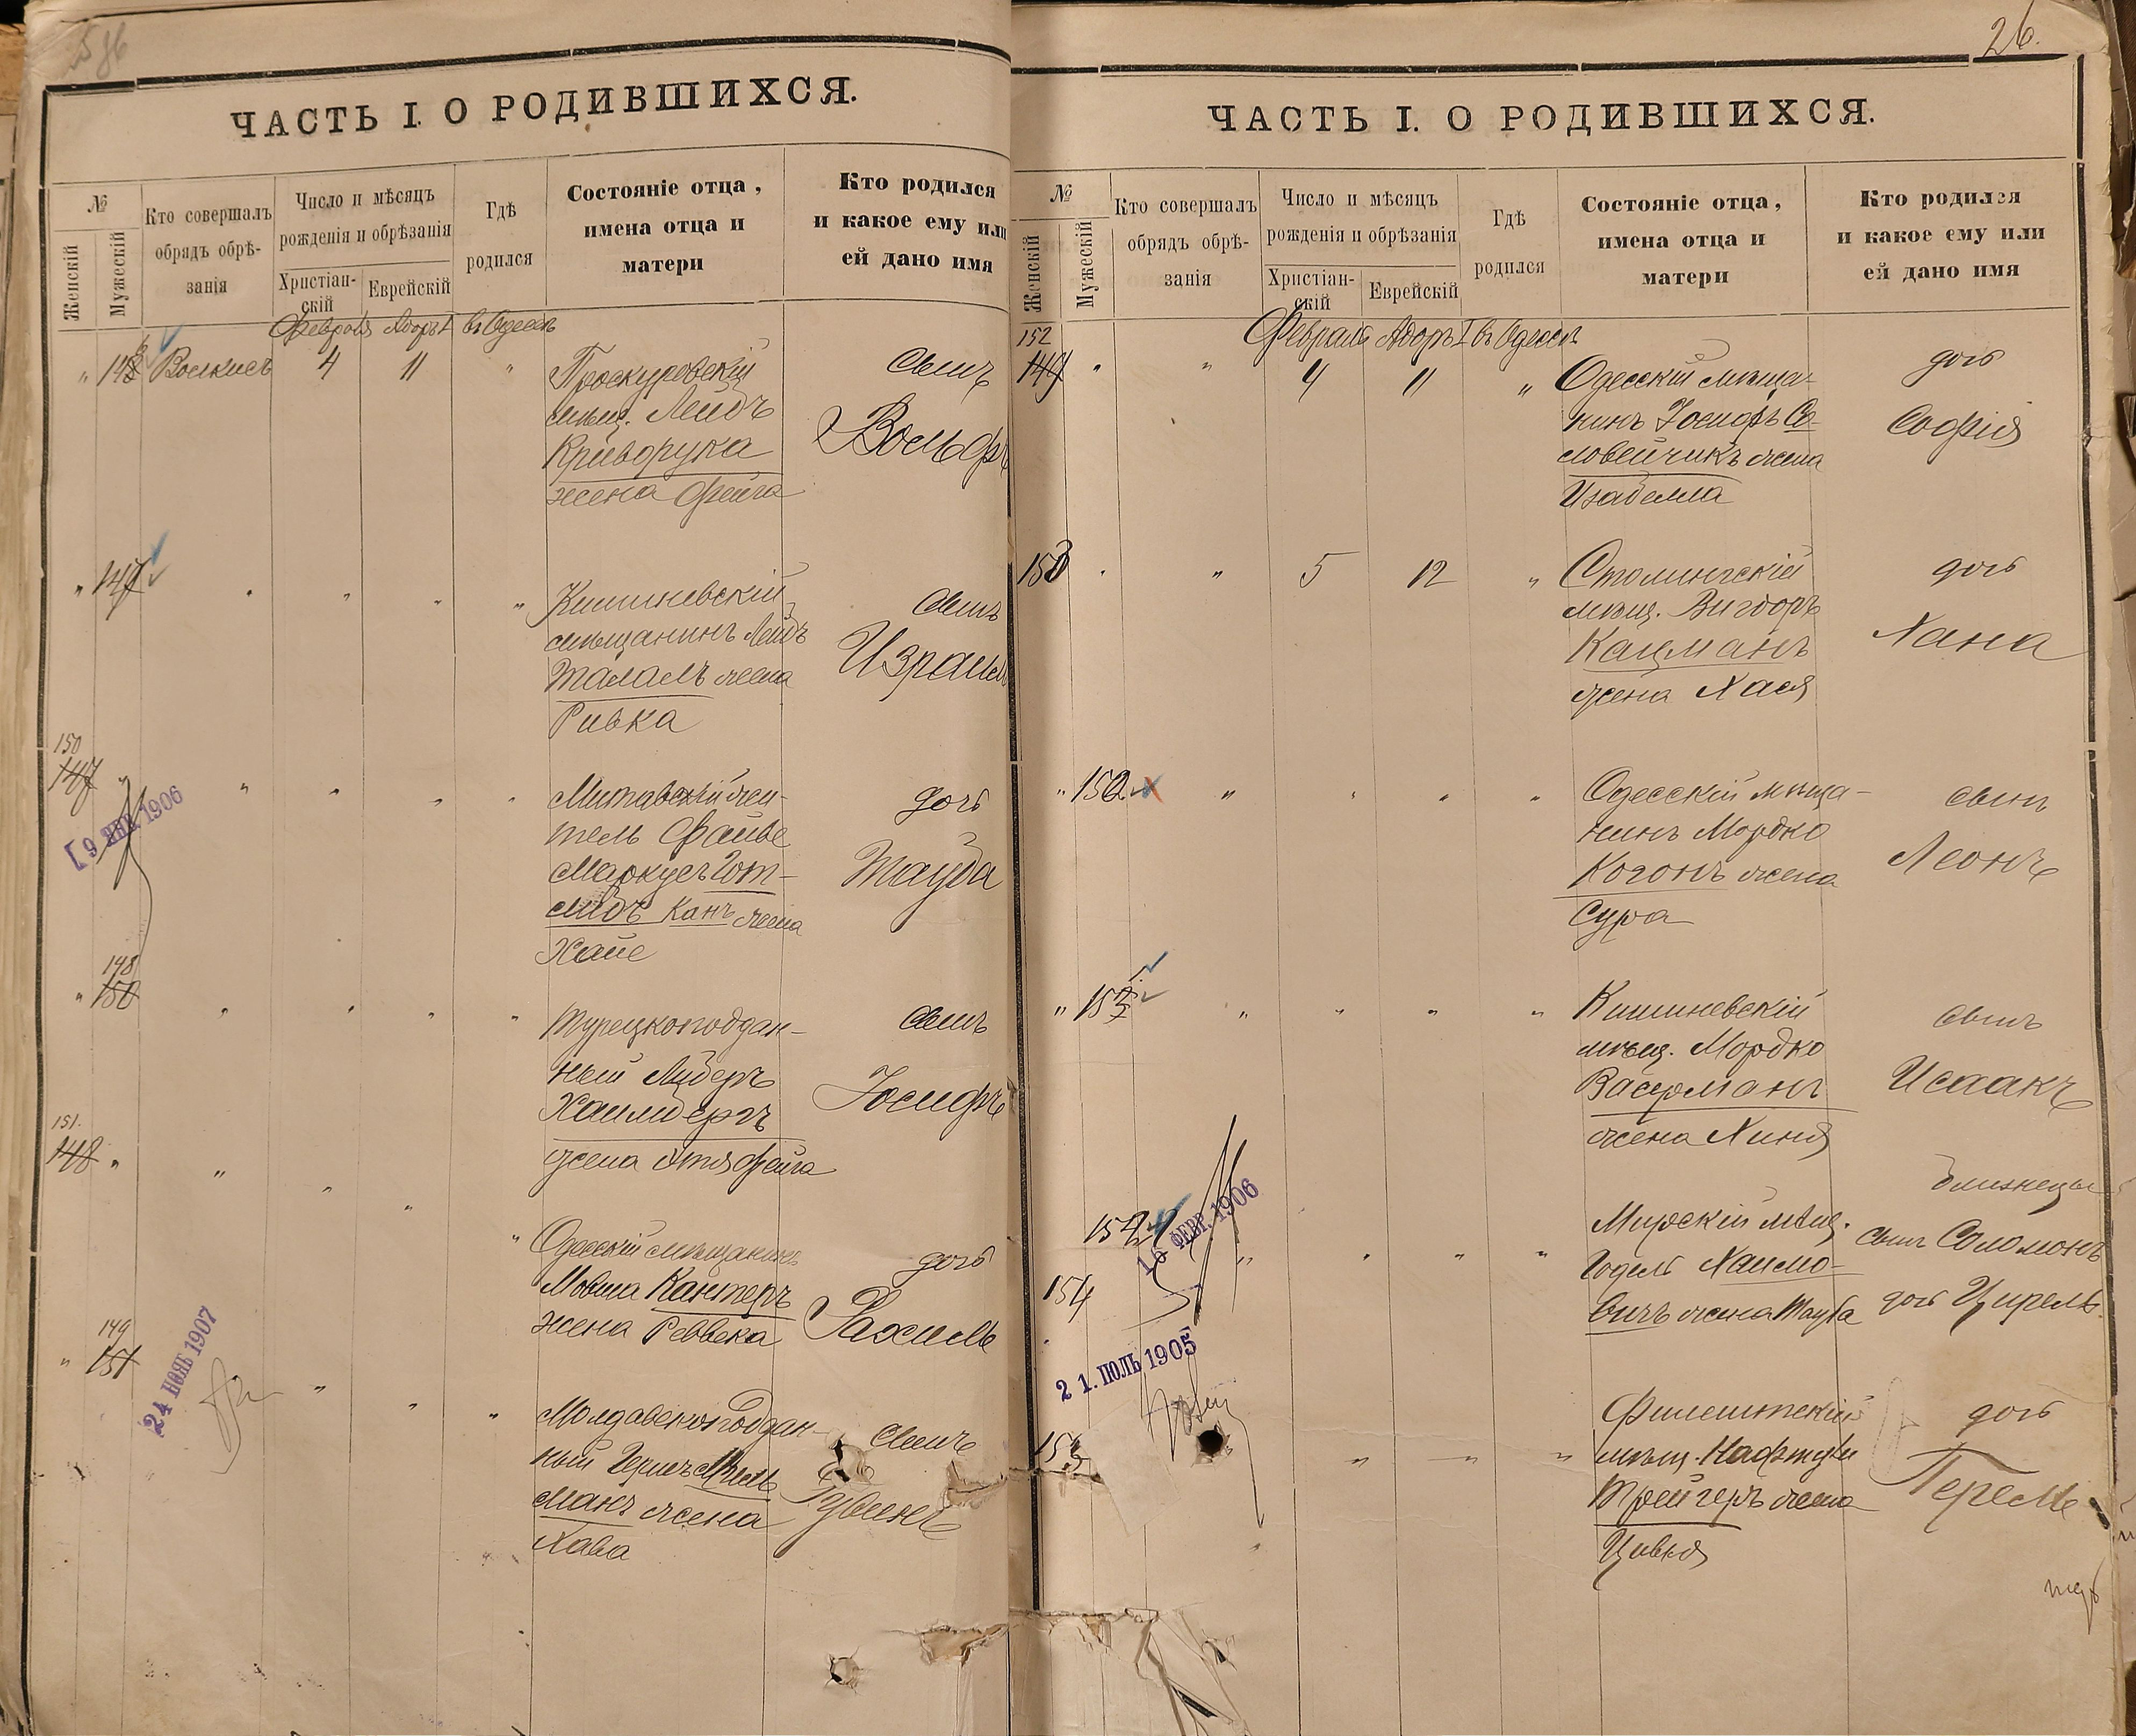 26.
ЧАСТЬ I. О РОДИВШИХСЯ.
№
Женскій
Мужескій
Кто совершалъ
обрядъ обрѣ-
занія
Число и мѣсяцъ
рожденія и обрѣзанія
Христіан-
скій
Еврейскій
Гдѣ
родился
Состояніе отца,
имена отца и
матери
Кто родился
и какое ему или
ей дано имя
Февраля Адаръ I въ Одессѣ
" Воскисъ 4 11 "
Проскуровскій
мѣщ. Лейбъ
Криворука
жена Фейга
сынъ
Вольфъ
" 147 " " " "
Кишиневскій
мѣщанинъ Лейбъ
Талалъ жена
Ривка
сынъ
Израиль
150
147 " " " " "
[9 ЯНВ 1906
Митавскій жи-
тель Файве
Маркусъ Гот-
либъ Канъ жена
Хайе
дочь
Тауба
148
" 150 " " " "
Турецкоподдан-
ный Лизеръ
Хаимбергъ
жена Этя Фейга
сынъ
Іосифъ
151.
148 " " " " "
Одесскій мѣщанинъ
Мовша Канторъ
жена Реввека
дочь
Рахиль
149
" 151 " " "
24 НОЯБ 1907
Молдавскоподдан-
ный Гершъ
манъ жена
Хава
сынъ
Рувинъ
ЧАСТЬ I. О РОДИВШИХСЯ.
№
Женскій
Мужескій
Кто совершалъ
обрядъ обрѣ-
занія
Число и мѣсяцъ
рожденія и обрѣзанія
Христіан-
скій
Еврейскій
Гдѣ
родился
Состояніе отца,
имена отца и
матери
Кто родился
и какое ему или
ей дано имя
Февраля Адаръ I въ Одессѣ
152
149 " " 4 11 "
Одесскій мѣща-
нинъ Іосифъ Со-
ловейчикъ жена
Изабелла
дочь
Софія
153 " " 5 12 "
Столинскій
мѣщ. Вигдоръ
Кацманъ
жена Хася
дочь
Хана
" 150 " " " "
Одесскій мѣща-
нинъ Мордко
Когонъ жена
Сура
сынъ
Леонъ
" 151 " " " "
Кишиневскій
мѣщ. Мордко
Васерманъ
жена Хиня
сынъ
Исаакъ
152 " " " "
154
16 ФЕВР. 1906
Мирскій мѣщ.
Годель Хаимо-
вичъ жена Тауба
близнецы
сынъ Соломонъ
дочь Цирель.
21. ІЮЛЬ 1905
155 " " "
Филештскій
мѣщ. Нафтули
Трейгеръ жена
Цивья
дочь
Перель